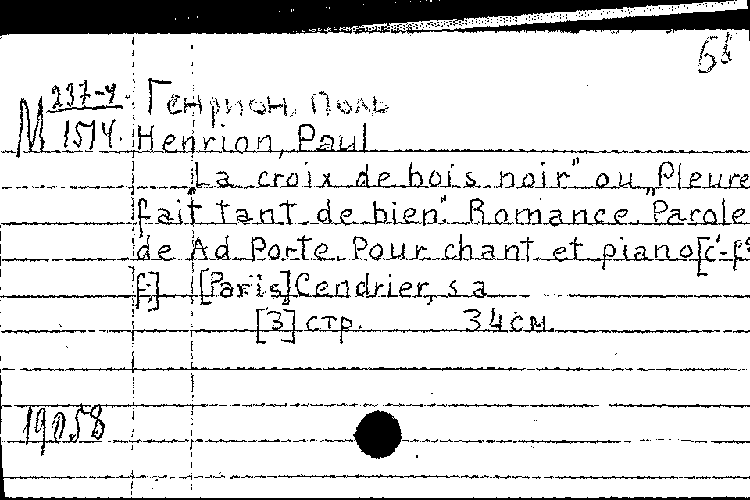 6b
М 237-4
1514.
Генрион, Поль
Henrion, Paul
„La croix de bois noir" ou „Pleure
fait tant de bien". Romance. Parole
de Ad. Porte. Pour chant et piano [c-f²
f.] [Paris] Cendrier, s a
[3] стр. 34 см.
19058